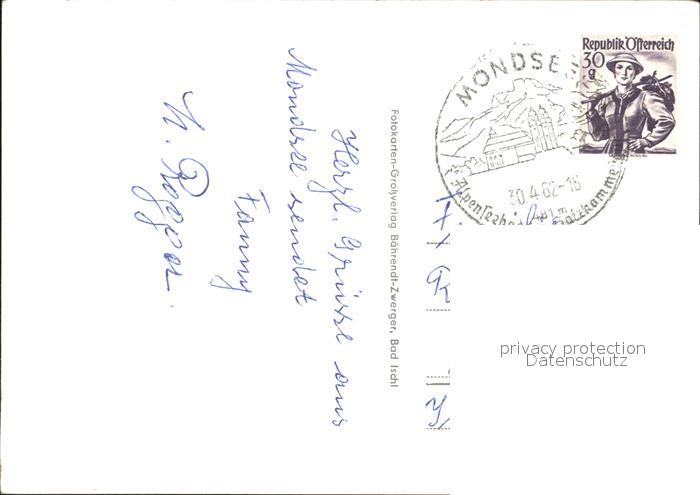 Herzl. Grüsse aus
Mondsee sendet
Fanny
Fotokarten-Großverlag Bährendt-Zwerger, Bad Ischl
MONDSEE
30.4.62-16
Republik Österreich
30
g
privacy protection
Datenschutz